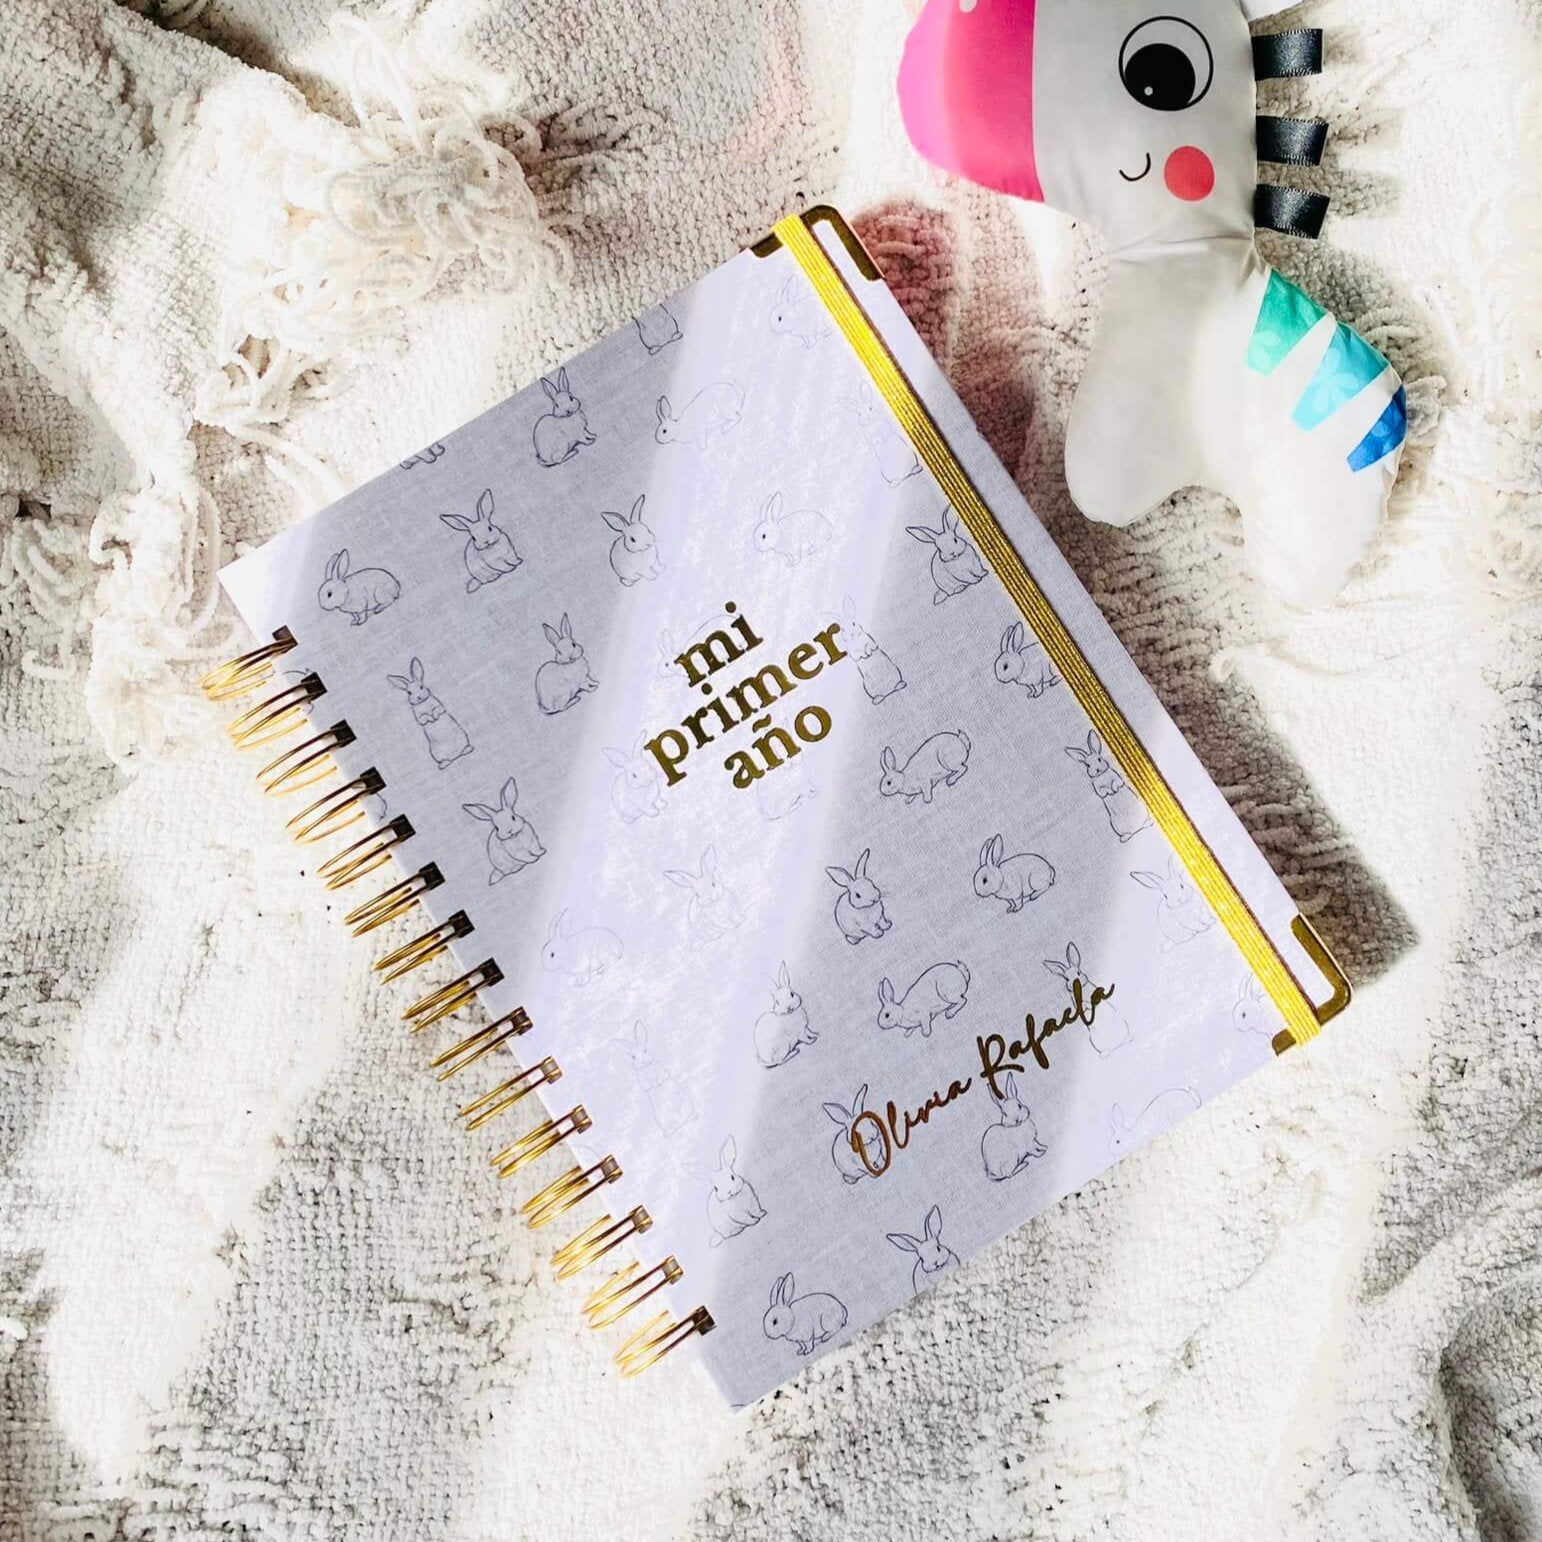 mi
primer
año
Olivia Rafaela